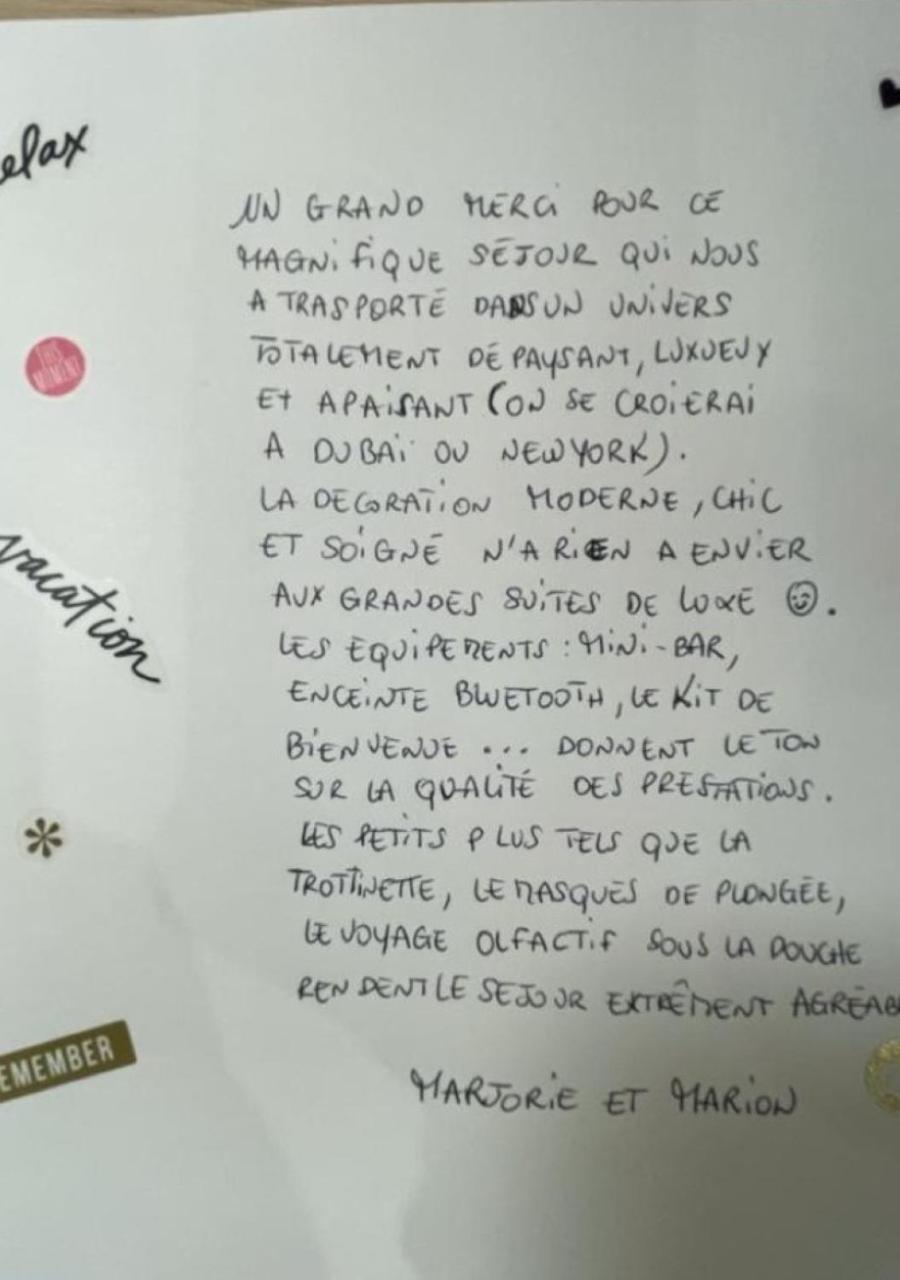 elax
UN GRAND MERCI POUR CE
MAGNIFIQUE SÉJOUR QUI NOUS
A TRASPORTÉ DANS UN UNIVERS
THIS MOMENT
TOTALEMENT DÉPAYSANT, LUXUEUX
ET APAISANT (ON SE CROIERAI
A DUBAÏ OU NEWYORK).
LA DECORATION MODERNE, CHIC
ET SOIGNÉ N'A RIEN A ENVIER
vacation
AUX GRANDES SUITES DE LUXE 😉.
LES EQUIPEMENTS : MINI-BAR,
ENCEINTE BLUETOOTH, LE KIT DE
BIENVENUE ... DONNENT LE TON
SUR LA QUALITÉ DES PRESTATIONS.
LES PETITS PLUS TELS QUE LA
TROTTINETTE, LE MASQUES DE PLONGÉE,
LE VOYAGE OLFACTIF SOUS LA DOUCHE
RENDENT LE SEJOUR EXTRÊMENT AGRÉAB
EMEMBER
MARJORIE ET MARION